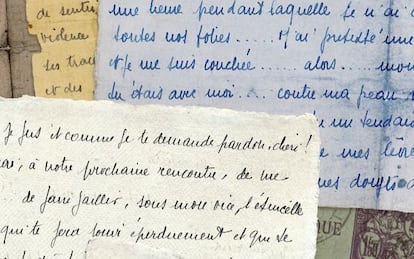 de senti
violence
ses trac
et des
une heure pendant laquelle je n'ai
toutes nos folies..... J'ai prétexté une
et je me suis couchée..... alors... mon
tu étais avec moi.... contre ma peau
me tendais
mes lèvres
mes doigts
je fus et comme je te demande pardon, chéri!
à notre prochaine rencontre, de me
de faire jaillir, sous mon
l'étincelle
qui te fera jouir éperdument et qui se
QUE
1F50